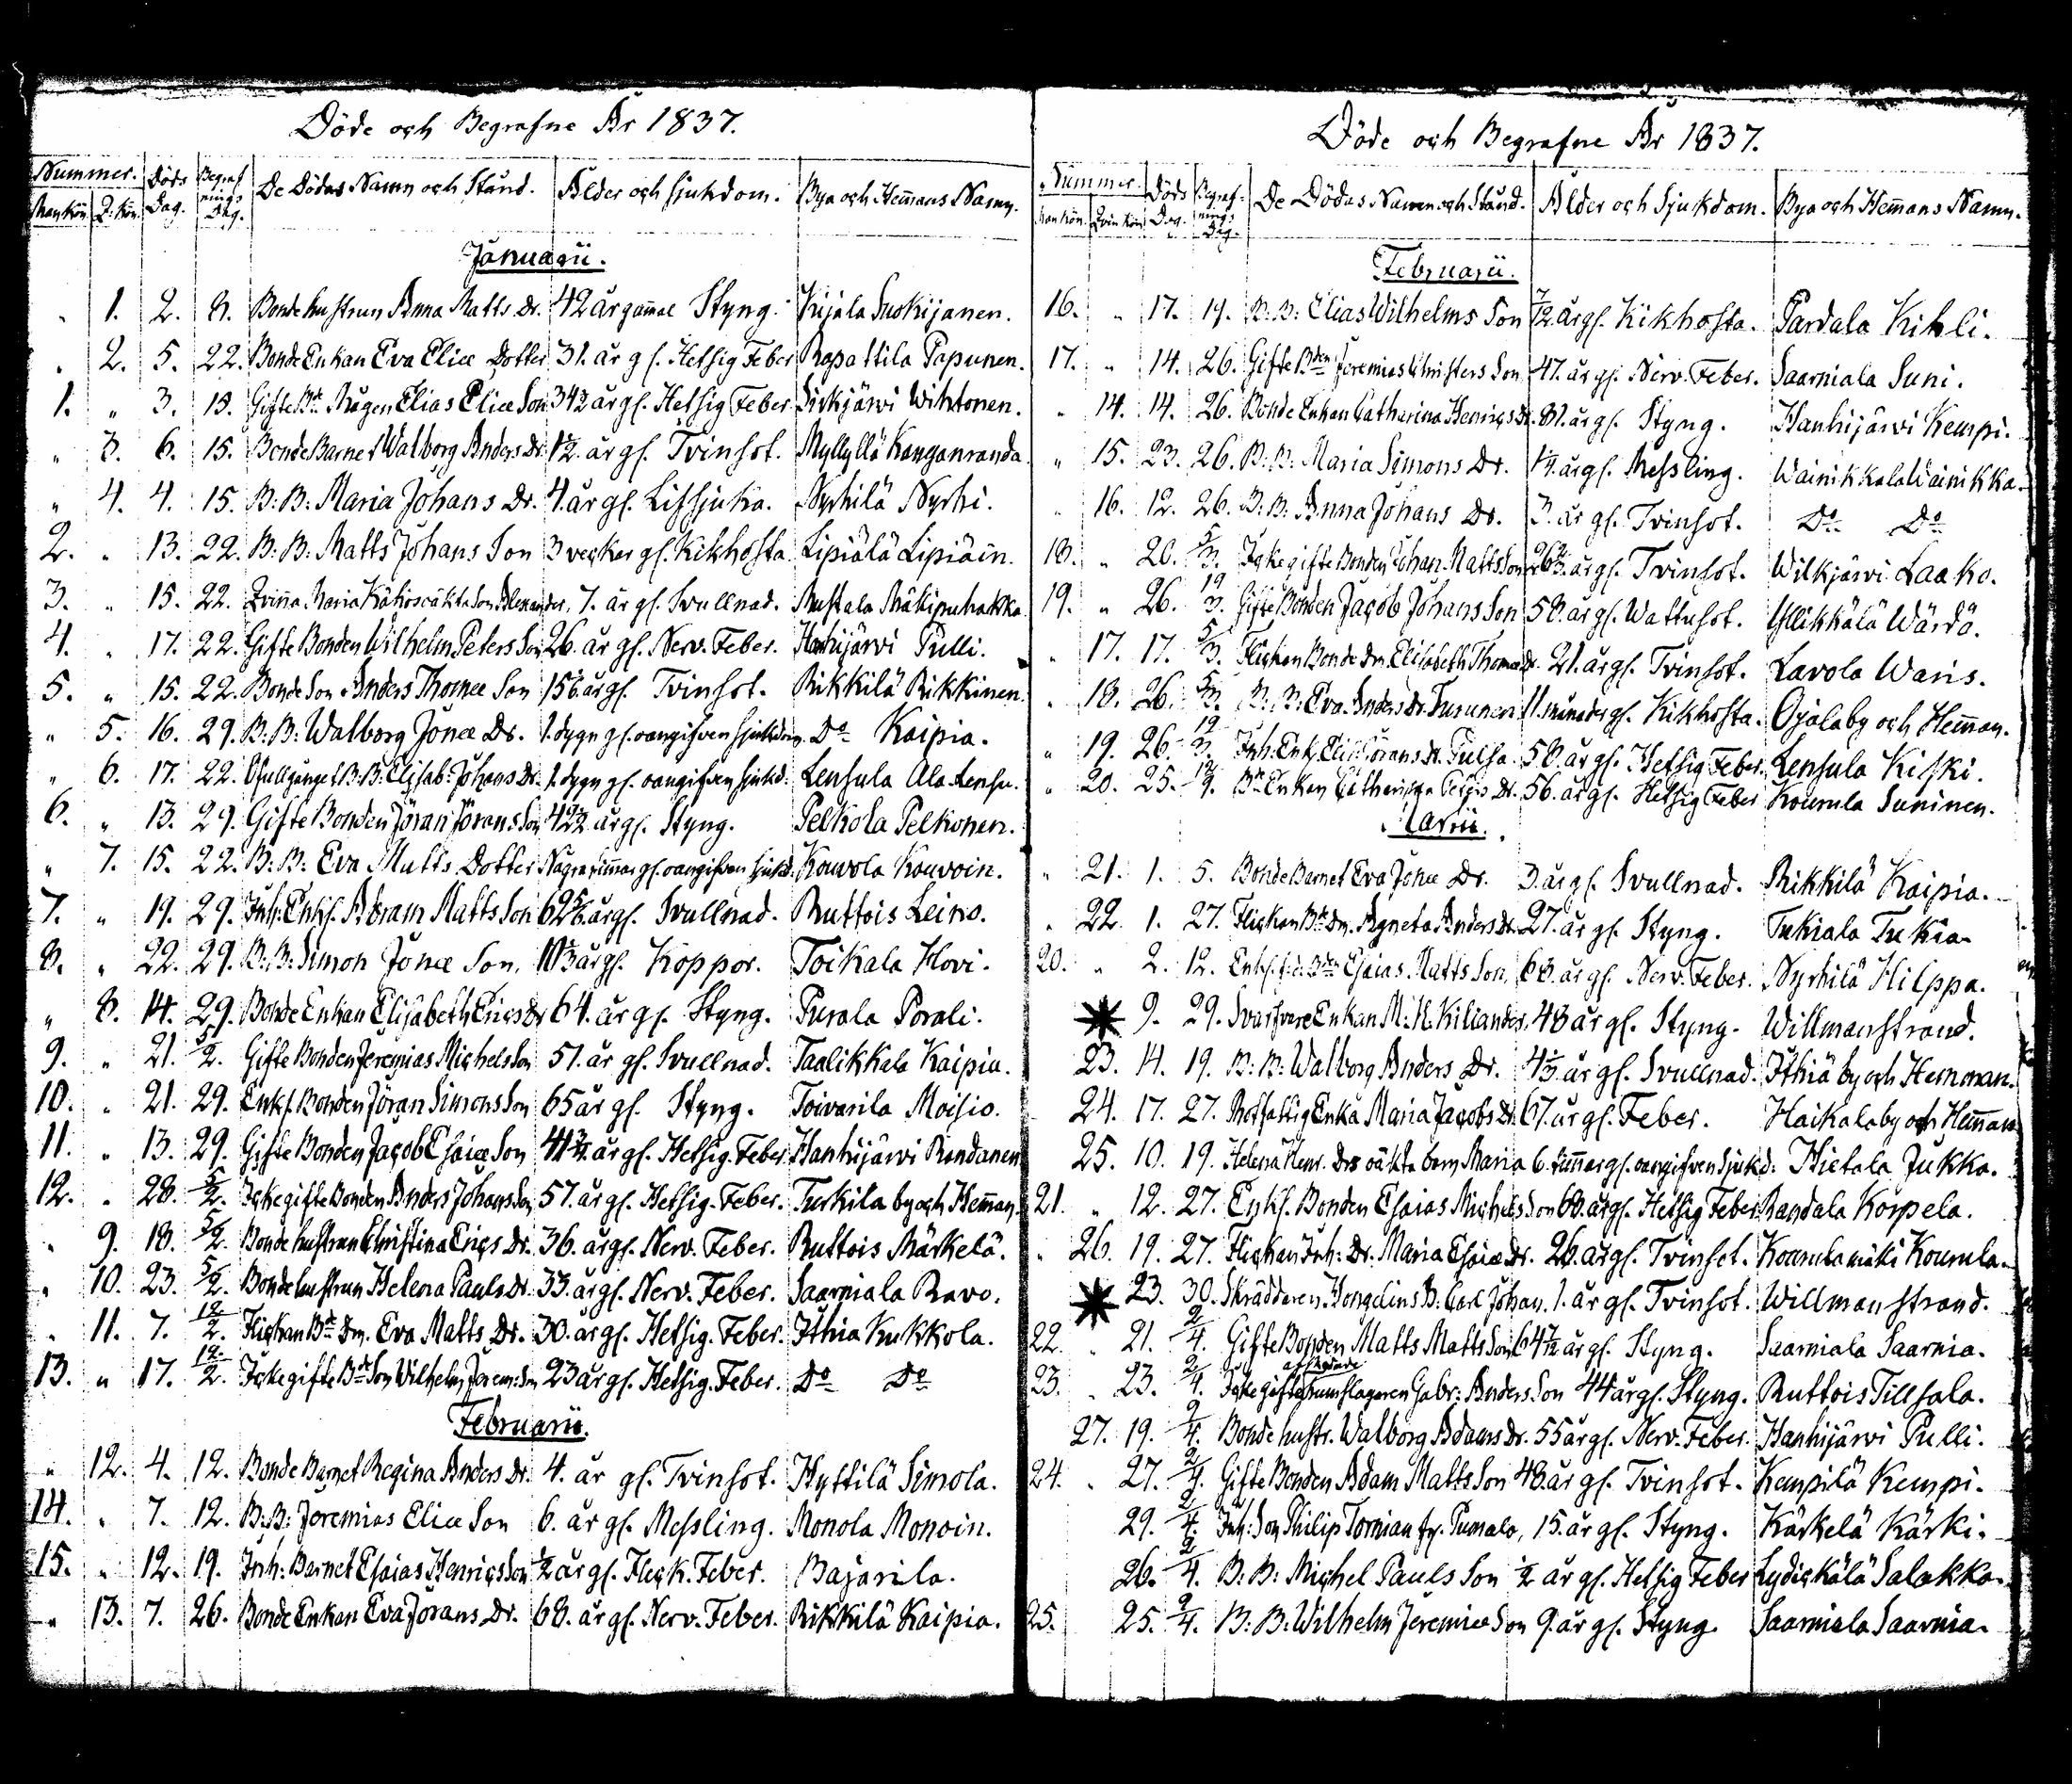 Döde och Begrafne År 1837.
Nummer. Döds Dag. Begrafnings Dag. De Dödas Namn och Stånd. Ålder och sjukdom. Bya och Hem̄ans Namn.
Mankön. Q: kön.
Januarii.
" 1. 2. 8. Bonde hustrun Anna Matts Dr. 42 år gam̄al Styng. Kijala Suokijanen.
" 2. 5. 22. Bonde Enkan Eva Eliæ Dotter 31. år gl. Hetsig Feber Rapattila Papunen.
1. " 3. 15. Gifte Bde Mågen Elias Eliæ Son 34½ år gl. Hetsig Feber Sirkjärvi Wihtonen.
" 3. 6. 15. Bonde Barnet Walborg Anders Dr. 1½ år gl. Tvinsot. Myllyllä Kanganranda
" 4. 4. 15. B: B: Maria Johans Dr. 4. år gl. Lifsjuka. Nyrhilä Nyrhi.
2. " 13. 22. B: B: Matts Johans Son 3 veckar gl. Kikhosta. Lipiälä Lipiäin.
3. " 15. 22. Qvin̄a Maria oäkta Son Alexander, 7. år gl. Svullnad. Mustala Mäkipuhakka
4. " 17. 22. Gifte Bonden Wilhelm Peters Son 26. år gl. Nerv. Feber. Hanhijärvi Pulli.
5. " 15. 22. Bonde Son Anders Thomæ Son 15 år gl. Tvinsot. Rikkilä Rikkinen.
" 5. 16. 29. B: B: Walborg Jonæ Dr. 1. dygn gl. oangifven sjukdom. Do Kaipia.
" 6. 17. 22. Ofullgånget B: B: Elisab: Johans Dr. 1. dygn gl. oangifven sjukd: Lensula Ala Lensu.
6. " 13. 29. Gifte Bonden Jöran Jörans Son 42½ år gl. Styng. Pelkola Pelkonen.
" 7. 15. 22. B: B: Eva Matts Dotter Några tim̄ar gl. oangifven sjukd: Kouvola Kouvoin.
7. " 19. 29. Inh: Enkl. Abram Matts Son 62 år gl. Svullnad. Ruttois Leino.
8. " 22. 29. B: B: Simon Jonæ Son, år gl. Koppor. Toikala Hovi.
" 8. 14. 29. Bonde Enkan Elisabeth Erics Dr 64. år gl. Styng. Purala Porali.
9. " 21. 5/2. Gifte Bonden Jeremias Michels Son 51. år gl. Svullnad. Taalikkala Kaipia.
10. " 21. 29. Enkl. Bonden Jöran Simons Son 65 år gl. Styng. Toivarila Moisio.
11. " 13. 29. Gifte Bonden Jacob Esaiæ Son 41 år gl. Hetsig. Feber Hanhijärvi Randanen
12. " 28. 5/2. Icke gifte Bonden Anders Johans Son 57. år gl. Hetsig. Feber. Turkila by och Hem̄an.
" 9. 18. 5/2. Bonde hustrun Christina Erics Dr. 36. år gl. Nerv. Feber. Ruttois Märkelä.
" 10. 23. 5/2. Bonde hustrun Helena Pauls Dr. 33. år gl. Nerv. Feber. Saarniala Ravo.
" 11. 7. 12/2. Flickan Bde Dr. Eva Matts Dr. 30. år gl. Hetsig. Feber. Ithia Kukkola.
13. " 17. 12/2. Icke gifte Bde Son Wilhelm Jerem: Son 23 år gl. Hetsig. Feber. Do Do
Februarii.
" 12. 4. 12. Bonde Barnet Regina Anders Dr. 4. år gl. Tvinsot. Hyttilä Simola.
14. " 7. 12. B: B: Jeremias Eliæ Son 6. år gl. Messling. Monola Monoin.
15. " 12. 19. Inh: Barnet Esaias Henrics Son ½ år gl. Fleck. Feber. Bajarila.
" 13. 7. 26. Bonde Enkan Eva Jörans Dr. 68. år gl. Nerv. Feber. Rikkilä Kaipia.
Döde och Begrafne År 1837.
Nummer. Döds Dag. Begrafnings Dag. De Dödas Namn och Stånd. Ålder och Sjukdom. Bya och Hem̄ans Namn.
Mankön. Qvinkön.
Februarii.
16. " 17. 19. B: B: Elias Wilhelms Son 7/12 år gl. Kikhosta. Pardala Kihli.
17. " 14. 26. Gifte Bden Jeremias Christers Son 47. år gl. Nerv. Feber. Saarniala Suni.
" 14. 14. 26. Bonde Enkan Catharina Henrics Dr. 81. år gl. Styng. Hanhijärvi Kempi.
" 15. 23. 26. B: B: Maria Simons Dr. år gl. Messling. Wainikkala Wainikka.
" 16. 12. 26. B: B: Anna Johans Dr. 3. år gl. Tvinsot. Do Do
18. " 20. 5/3. Icke gifte Bonden Johan Matts Son 26 år gl. Tvinsot. Wilkjärvi Laako.
19. " 26. 19/3. Gifte Bonden Jacob Johans Son 58. år gl. Wattusot. Yllikkälä Wärdö.
" 17. 17. 5/3. Flickan Bonde Dr. Elisabeth Thomæ Dr. 21. år gl. Tvinsot. Lavola Waris.
" 18. 26. 5/3. B: B: Eva Anders Dr. Turunen 11. månader gl. Kikhosta. Ojala by och Hem̄an.
" 19. 26. 19/3. Inh: Enk. Jörans Dr. Tulsa. 58. år gl. Hetsig Feber. Lensula Kiski.
" 20. 25. Bde Enkan Catharina Dr. 56. år gl. Hetsig Feber Kourula Suninen.
Martii.
" 21. 1. 5. Bonde Barnet Eva Jonæ Dr. 3. år gl. Svullnad. Rikkilä Kaipia.
" 22. 1. 27. Flickan Bde Dr. Agneta Anders Dr. 27. år gl. Styng. Tukiala Tukia.
20. " 2. 12. Enkl. Bden Esaias Matts Son, 68. år gl. Nerv. Feber. Nyrhilä Hilppa.
9. 29. Svarfvare Enkan M: H. Kiliander, 48 år gl. Styng. Willmanstrand.
23. 14. 19. B: B: Walborg Anders Dr. 4⅓ år gl. Svullnad. Ithiä by och Hemman.
24. 17. 27. Rotfattig Enka Maria Jacobs Dr. 67. år gl. Feber. Haikala by och Hem̄an
25. 10. 19. Helena Henr. Drs oäkta barn Maria 6. tim̄ar gl. oangifven Sjukd: Hietala Jukka.
21. " 12. 27. Enkl. Bonden Esaias Michels Son 68. år gl. Hetsig Feber Randala Korpela.
" 26. 19. 27. Flickan Inh: Dr. Maria Esaiæ Dr. 26. år gl. Tvinsot. Kourula mäki Kourula.
23. 30. Skräddaren Hongelins B: Carl Johan. 1. år gl. Tvinsot. Willmanstrand.
22. " 21. 2/4. Gifte Bonden Matts Matts Son 64 år gl. Styng. Saarniala Saarnia.
23. " 23. 2/4. Icke gifte afskedade Trumslagaren Gabr: Anders Son 44 år gl. Styng. Ruttois Tillsala.
27. 19. 2/4. Bonde hustr. Walborg Adams Dr. 55 år gl. Nerv. Feber. Hanhijärvi Pulli.
24. " 27. 2/4. Gifte Bonden Adam Matts Son 48. år gl. Tvinsot. Kempilä Kempi.
29. 2/4. Inh: Son Philip Tornian fr. Pumala, 15. år gl. Styng. Kärkelä Kärki.
26. 2/4. B: B: Michel Pauls Son ½ år gl. Hetsig Feber Lydickälä Salakka.
25. 25. 2/4. B: B: Wilhelm Jeremiæ Son 9. år gl. Styng. Saarniala Saarnia.